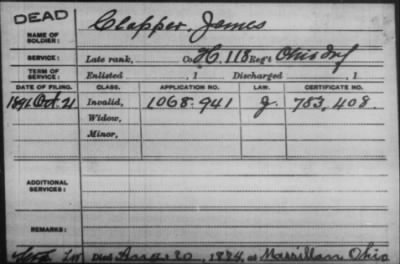 DEAD
NAME OF SOLDIER: Clapper, James
SERVICE: Late rank, Co. H, 118 Reg't Ohio Inf
TERM OF SERVICE: Enlisted , 1 Discharged , 1
DATE OF FILING. CLASS. APPLICATION NO. LAW. CERTIFICATE NO.
1891 Oct. 21 Invalid, 1068.941 J. 783,408.
Widow,
Minor,
ADDITIONAL SERVICES:
REMARKS:
Died 20, at Massillon Ohio